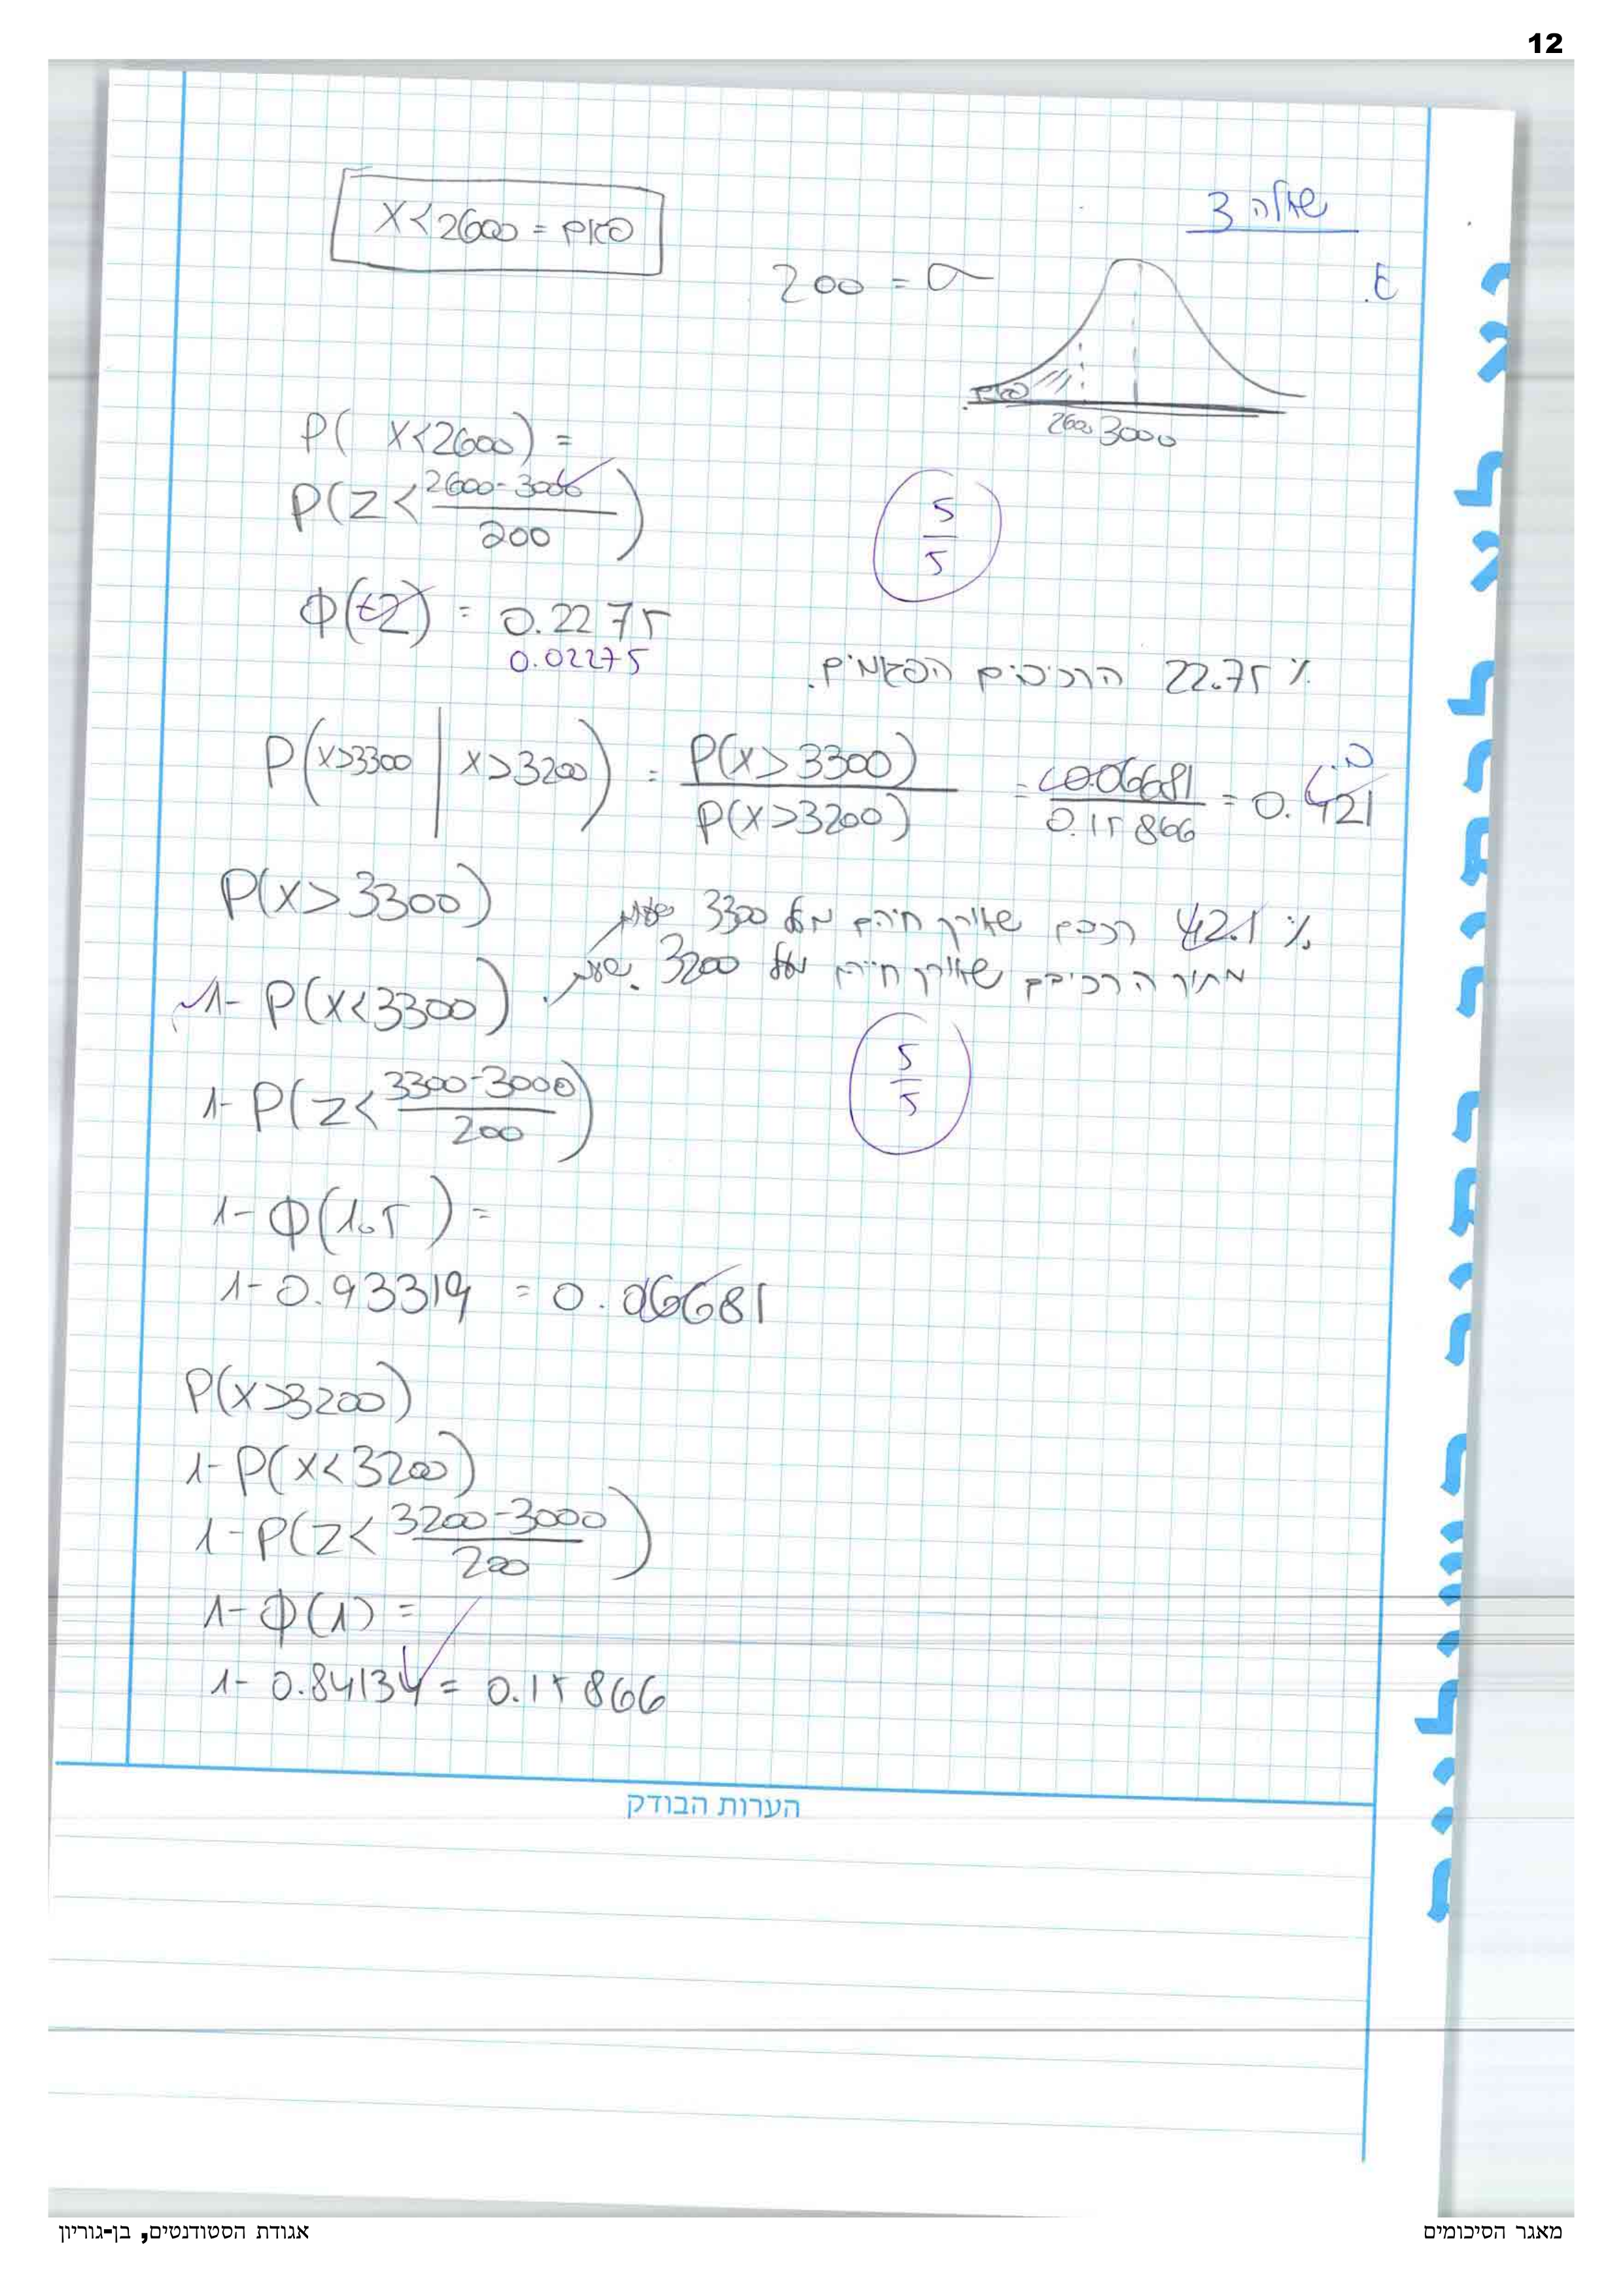 12
שאלה 3
א.
X<2600 = פגום
200 = σ
פגום
2600 3000
P( X<2600) =
P(Z< (2600-3000)/200 )
5/5
Φ(-2) = 0.2275
0.02275
22.75 % הרכיבים הפגומים.
ב.
P(X>3300 | X>3200) = P(X>3300)/P(X>3200) = 0.06681/0.15866 = 0.421
P(X>3300)
42.1 % רכבם שאורך חייהם מעל 3300 שעות
מתוך הרכיבים שאורך חייהם מעל 3200 שעות.
1- P(X<3300)
5/5
1- P(Z< (3300-3000)/200 )
1- Φ(1.5) =
1- 0.93319 = 0.06681
P(X>3200)
1- P(X<3200)
1- P(Z< (3200-3000)/200 )
1- Φ(1) =
1- 0.84134 = 0.15866
הערות הבודק
מאגר הסיכומים
אגודת הסטודנטים, בן-גוריון